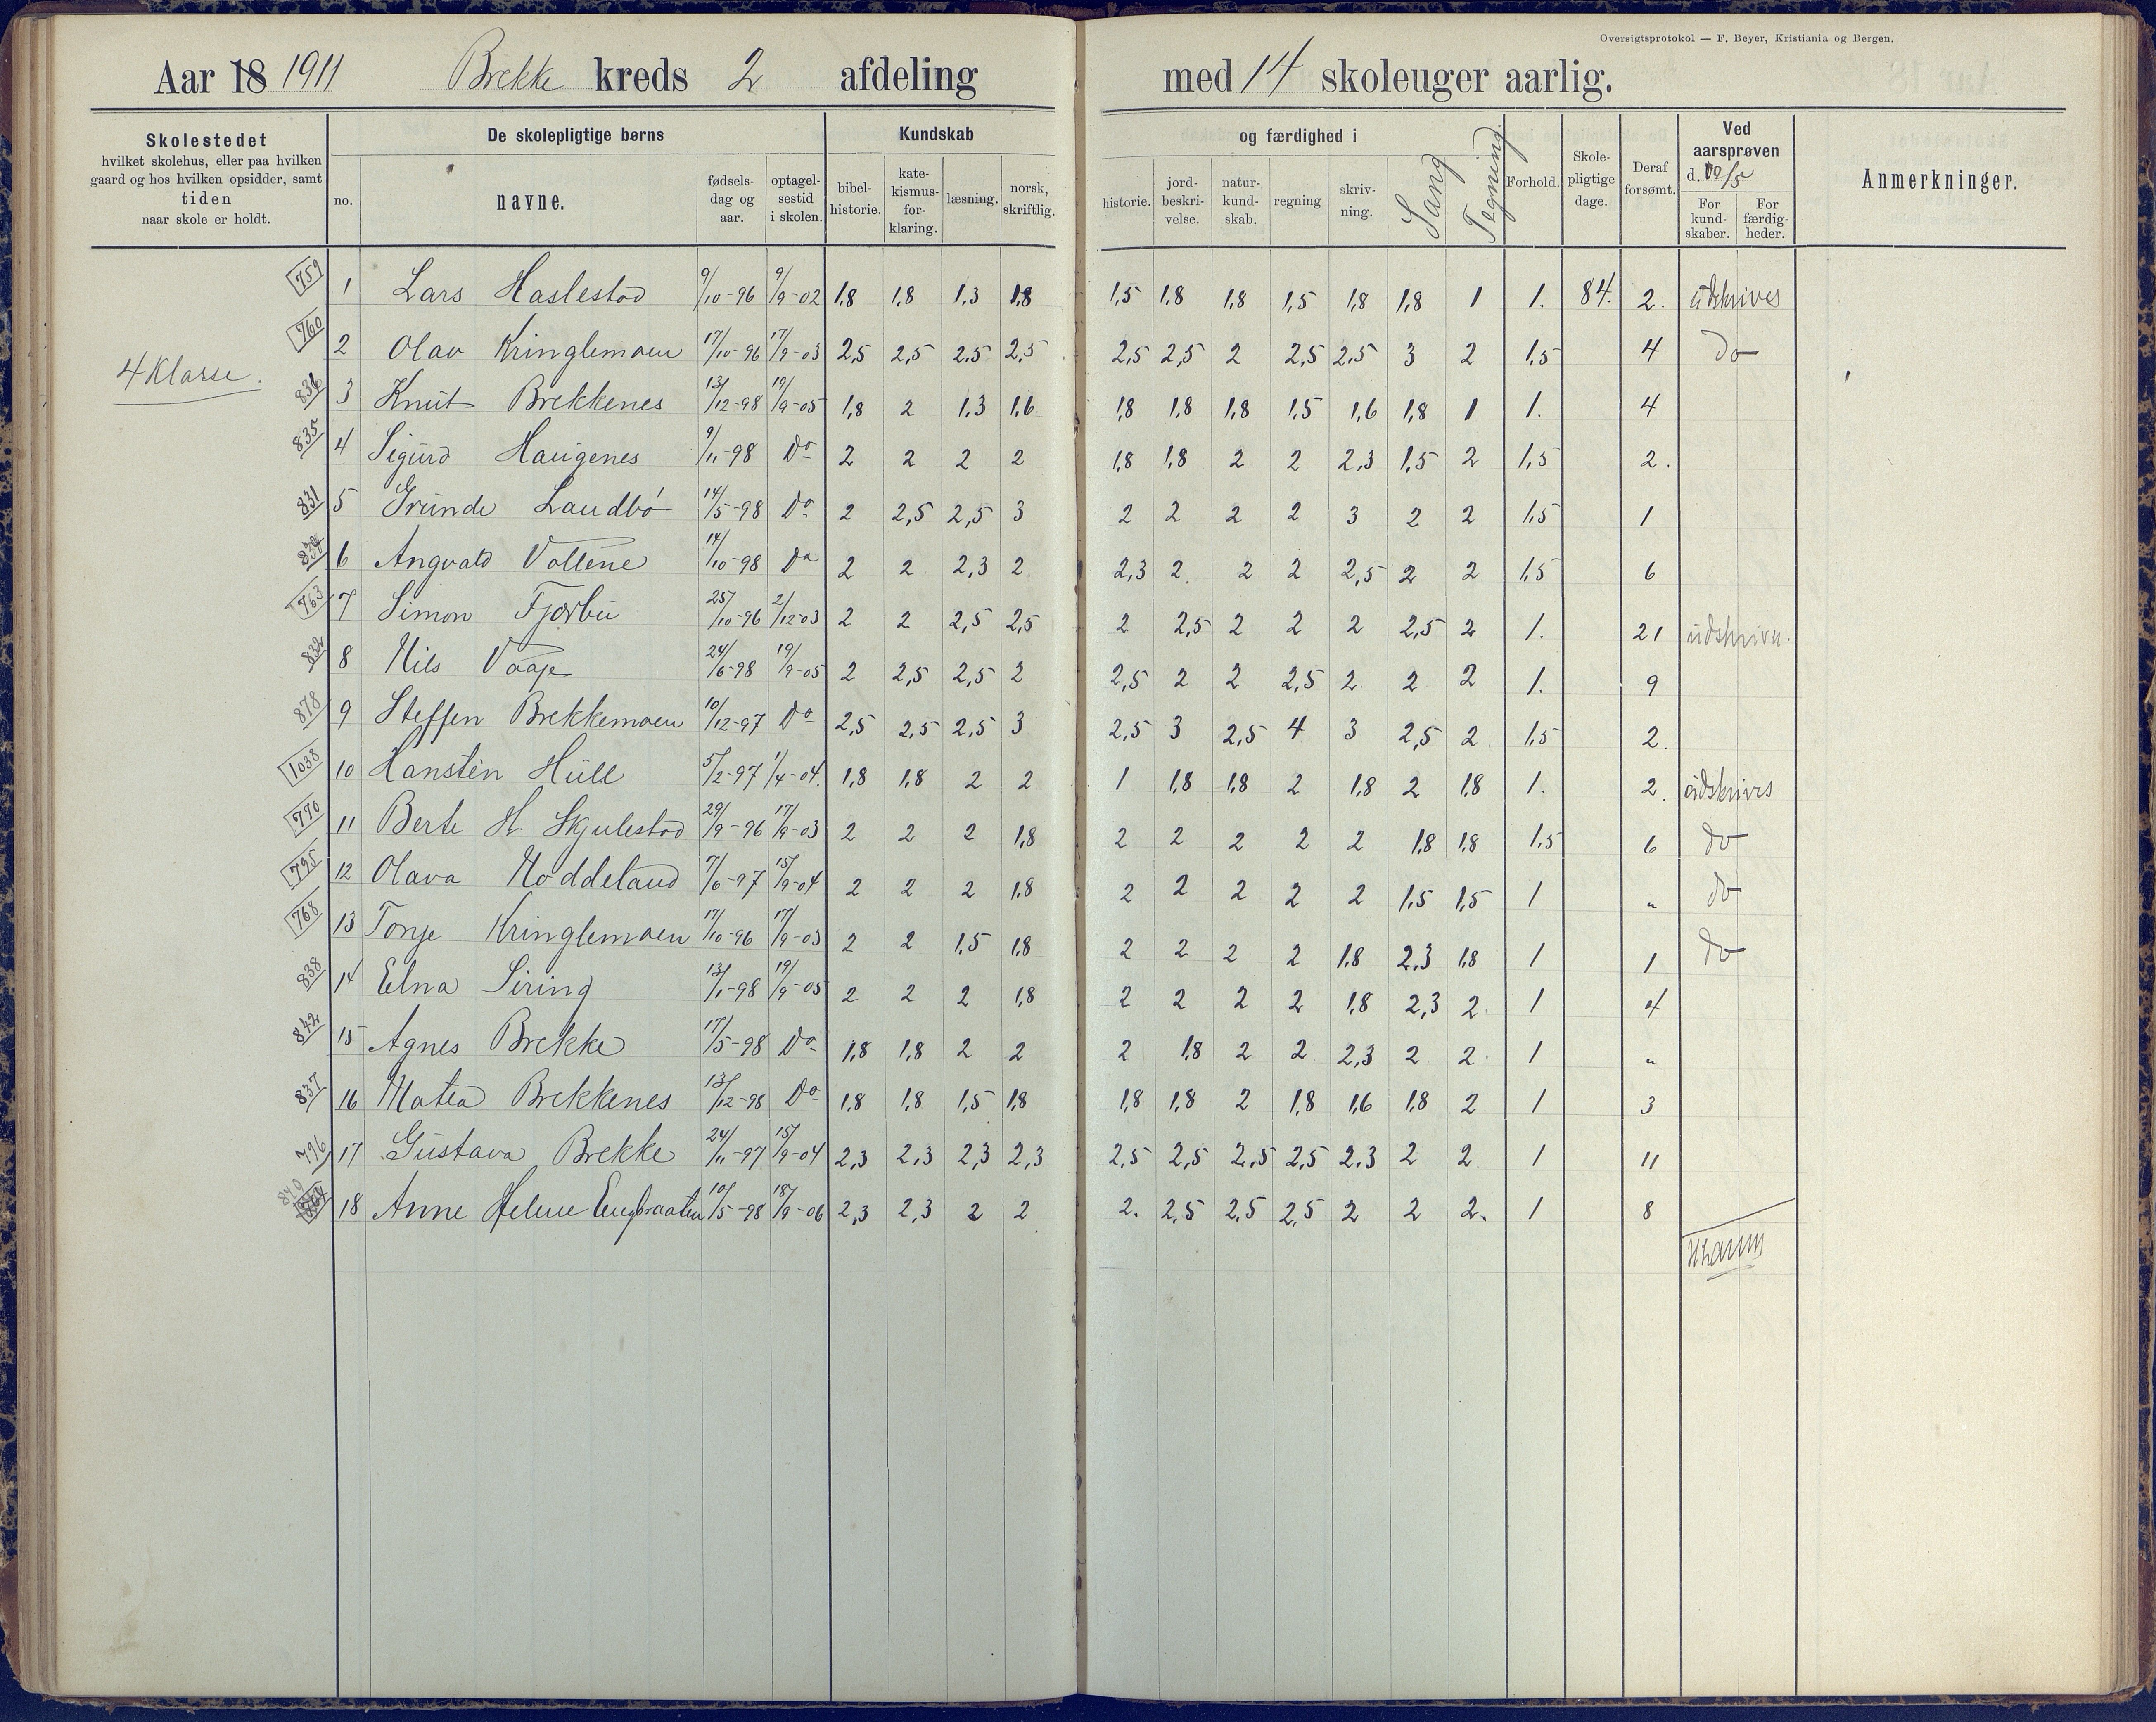 Oversigtsprotokol — F. Beyer, Kristiania og Bergen.
Aar 18 1911 Brekke kreds 2 afdeling med 14 skoleuger aarlig.
Skolestedet hvilket skolehus, eller paa hvilken gaard og hos hvilken opsidder, samt tiden naar skole er holdt.
De skolepligtige børns
no. navne. fødsels-dag og aar. optagel-sestid i skolen.
Kundskab og færdighed i
bibel-historie. kate-kismus-for-klaring. læsning. norsk, skriftlig. historie. jord-beskri-velse. natur-kund-skab. regning skriv-ning. Sang Tegning.
Forhold. Skole-pligtige dage. Deraf forsømt.
Ved aarsprøven d. /5
For kund-skaber. For færdig-heder.
Anmerkninger.
4 Klasse.
759 1 Lars Haslestad 9/10-96 9/9-02 1,8 1,8 1,3 1,8 1,5 1,8 1,8 1,5 1,8 1,8 1 1. 84. 2. udskrives
760 2 Olav Kringlemoen 17/10-96 17/9-03 2,5 2,5 2,5 2,5 2,5 2,5 2 2,5 2,5 3 2 1,5 4 do
3 Knut Brekkenes 13/12-98 19/9-05 1,8 2 1,3 1,6 1,8 1,8 1,8 1,5 1,6 1,8 1 1. 4
835 4 Sigurd Haugenes 9/11-98 Do 2 2 2 2 1,8 1,8 2 2 2,3 1,5 2 1,5 2.
831 5 Grunde Landbø 14/5-98 Do 2 2,5 2,5 3 2 2 2 2 3 2 2 1,5 1
6 Angvald Vollene 14/10-98 Do 2 2 2,3 2 2,3 2 2 2 2,5 2 2 1,5 6
763 7 Simon Fjorbu 25/10-96 2/12-03 2 2 2,5 2,5 2 2,5 2 2 2 2,5 2 1. 21 udskrives.
832 8 Nils Vaaje 24/6-98 19/9-05 2 2,5 2,5 2 2,5 2 2 2,5 2 2 2 1. 9
878 9 Steffen Brekkemoen 10/12-97 Do 2,5 2,5 2,5 3 2,5 3 2,5 4 3 2,5 2 1,5 2.
1038 10 Hansten Hull 5/2-97 1/4-04. 1,8 1,8 2 2 1 1,8 1,8 2 1,8 2 1,8 1. 2. udskrives
770 11 Berte H. Skjulestad 29/9-96 17/9-03 2 2 2 1,8 2 2 2 2 2 1,8 1,8 1,5 6 do
795 12 Olava Hoddeland 7/6-97 15/9-04 2 2 2 1,8 2 2 2 2 2 1,5 1,5 1 " do
768 13 Tonje Kringlemoen 17/10-96 17/9-03 2 2 1,5 1,8 2 2 2 2 1,8 2,3 1,8 1 1 do
838 14 Elna Siring 13/1-98 19/9-05 2 2 2 1,8 2 2 2 2 1,8 2,3 2. 1 4
842 15 Agnes Brekke 17/5-98 Do 1,8 1,8 2 2 2 1,8 2 2 2,3 2 2. 1 "
837 16 Matea Brekkenes 13/12-98 Do 1,8 1,8 1,5 1,8 1,8 1,8 2 1,8 1,6 1,8 2 1 3
796 17 Gustava Brekke 24/11-97 15/9-04 2,3 2,3 2,3 2,3 2,5 2,5 2,5 2,5 2,3 2 2 1 11
840 18 Anne Helene Engbraaten 10/5-98 18/9-06 2,3 2,3 2 2 2. 2,5 2,5 2,5 2 2 2. 1 8